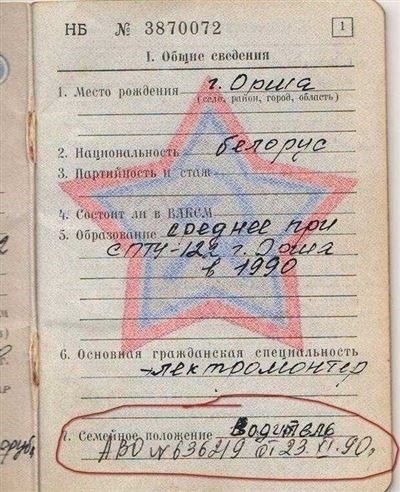 НБ № 3870072 1
I. Общие сведения
1. Место рождения г. Орша
(село, район, город, область)
2. Национальность белорус
3. Партийность и стаж
4. Состоит ли в ВЛКСМ
5. Образование среднее при
СПТУ-122 г. Орша
в 1990
6. Основная гражданская специальность
электромонтер
7. Семейное положение Водитель
АВО № 636219 от 23.VI.90г